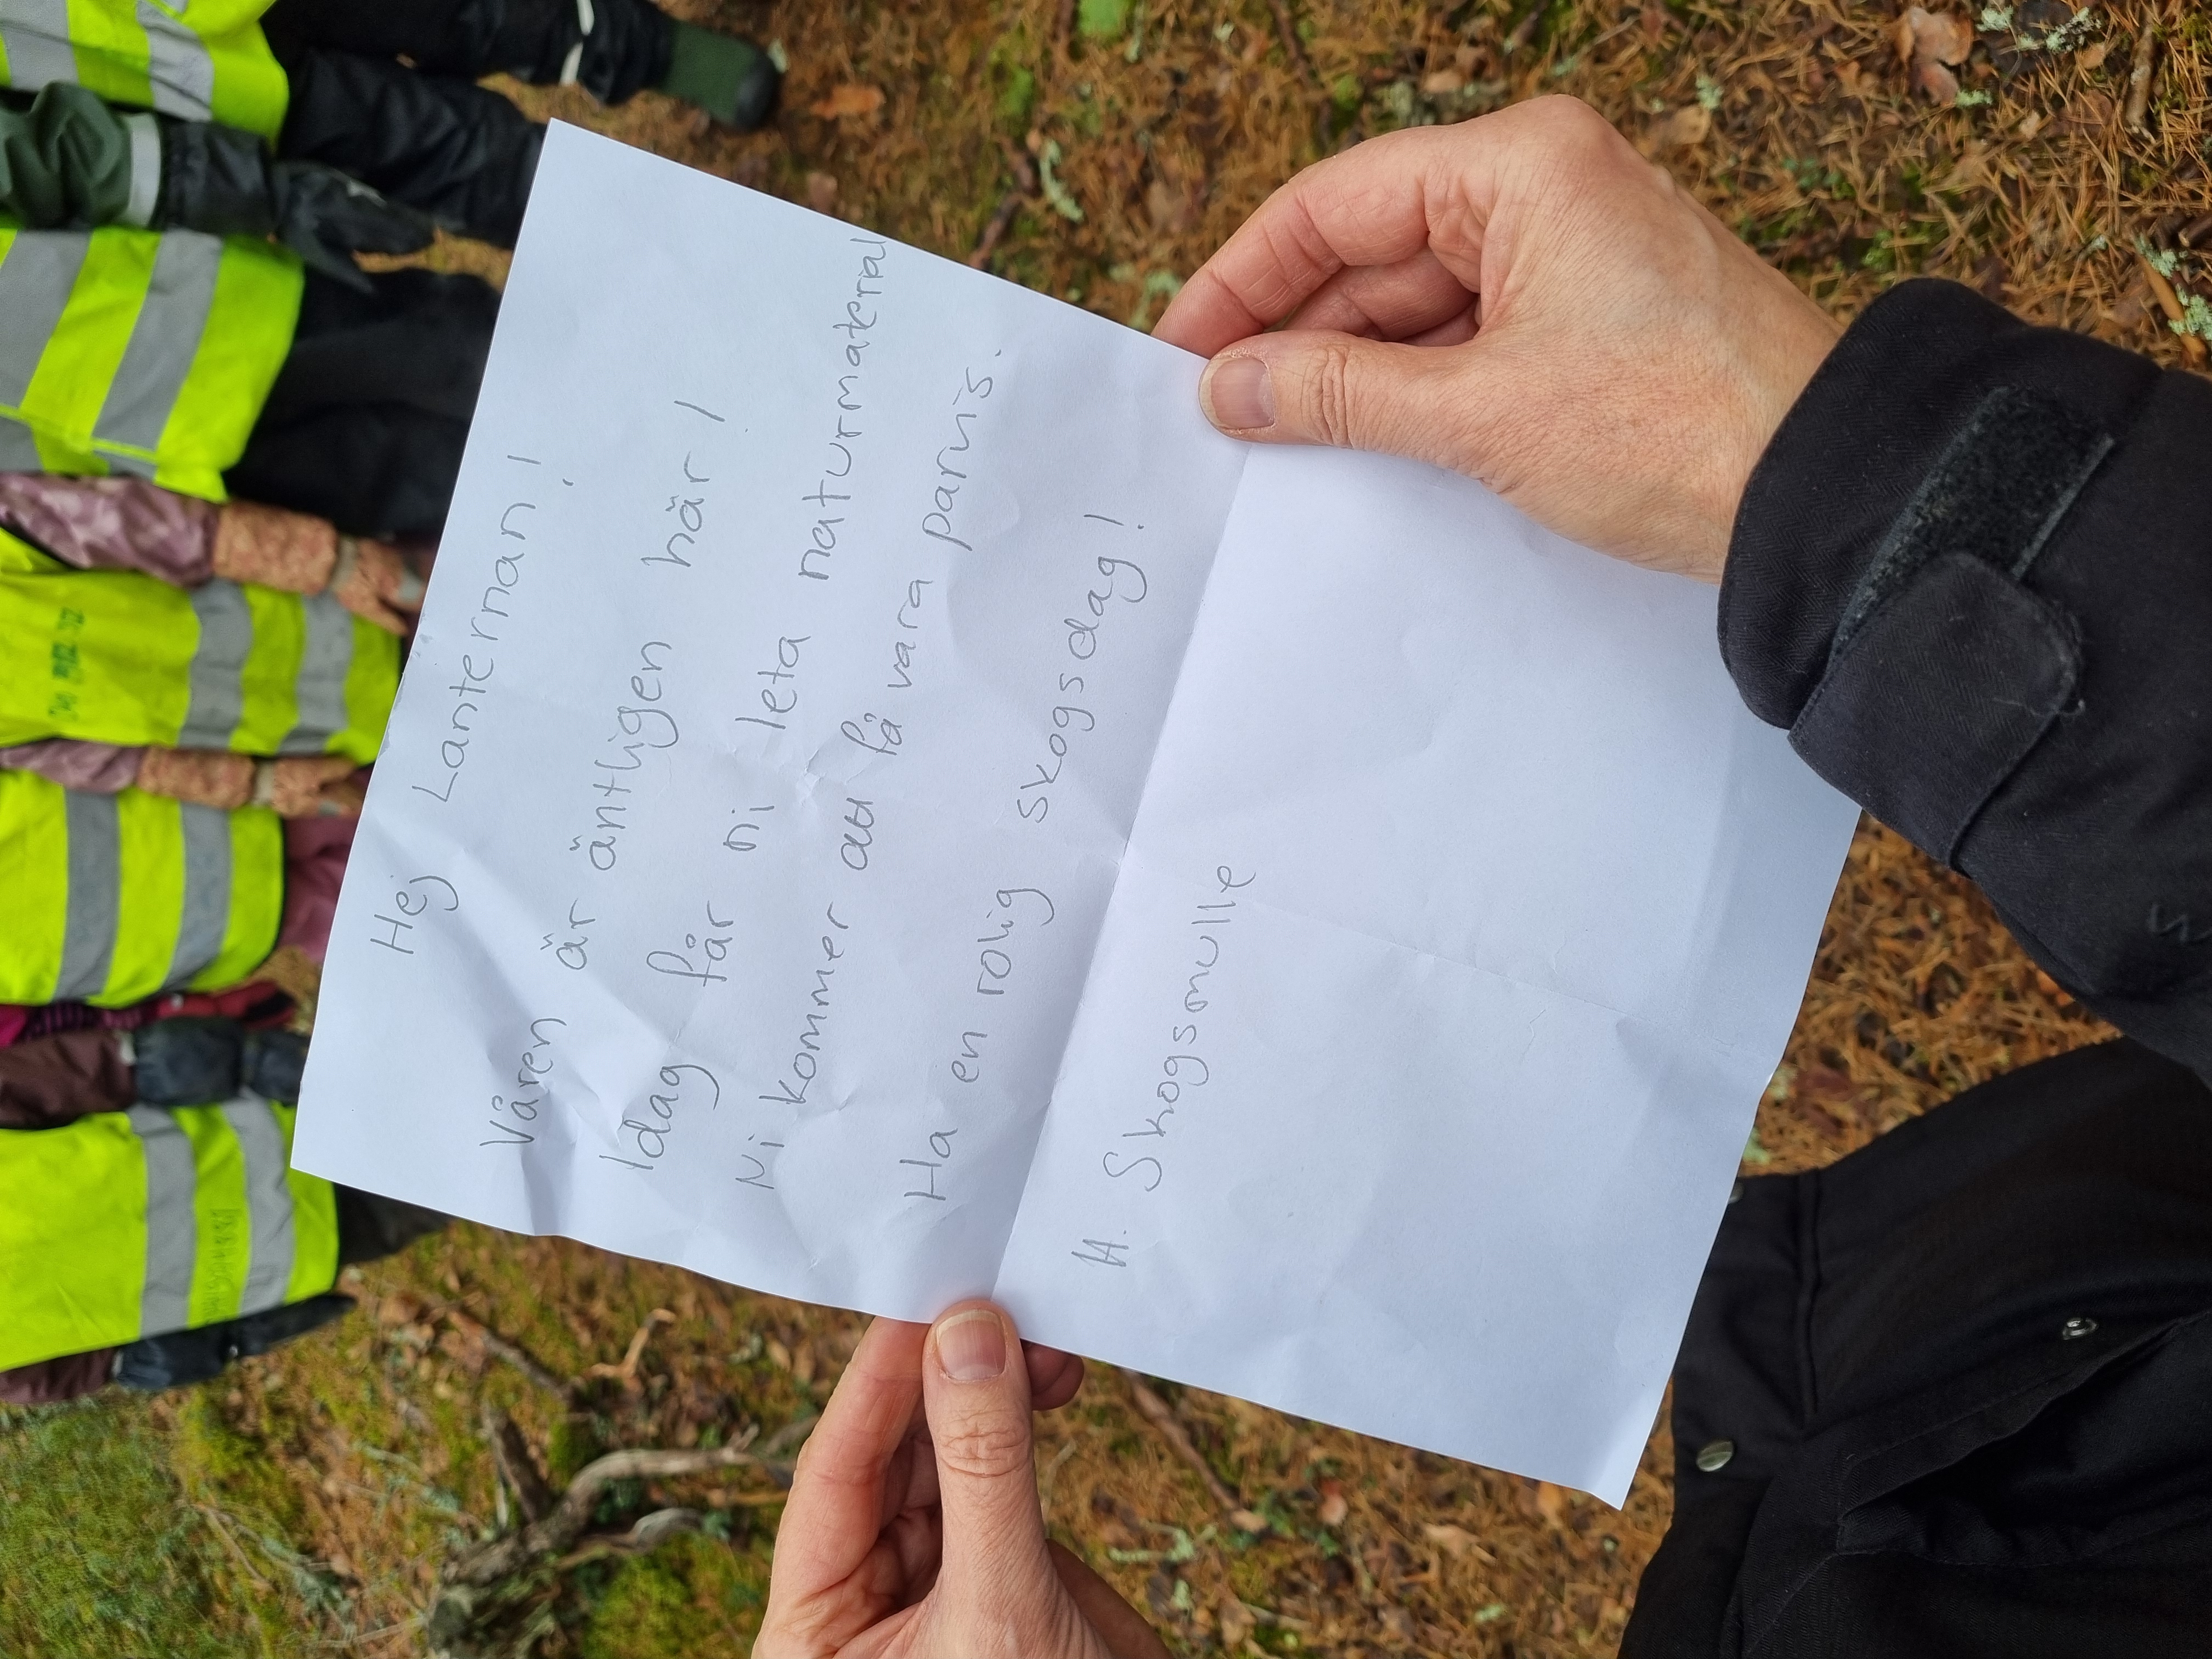 Hej Lanternan!
Våren är äntligen här!
Idag får ni leta naturmaterial
Ni kommer att få vara parvis.
Ha en rolig skogsdag!
H. Skogsmulle